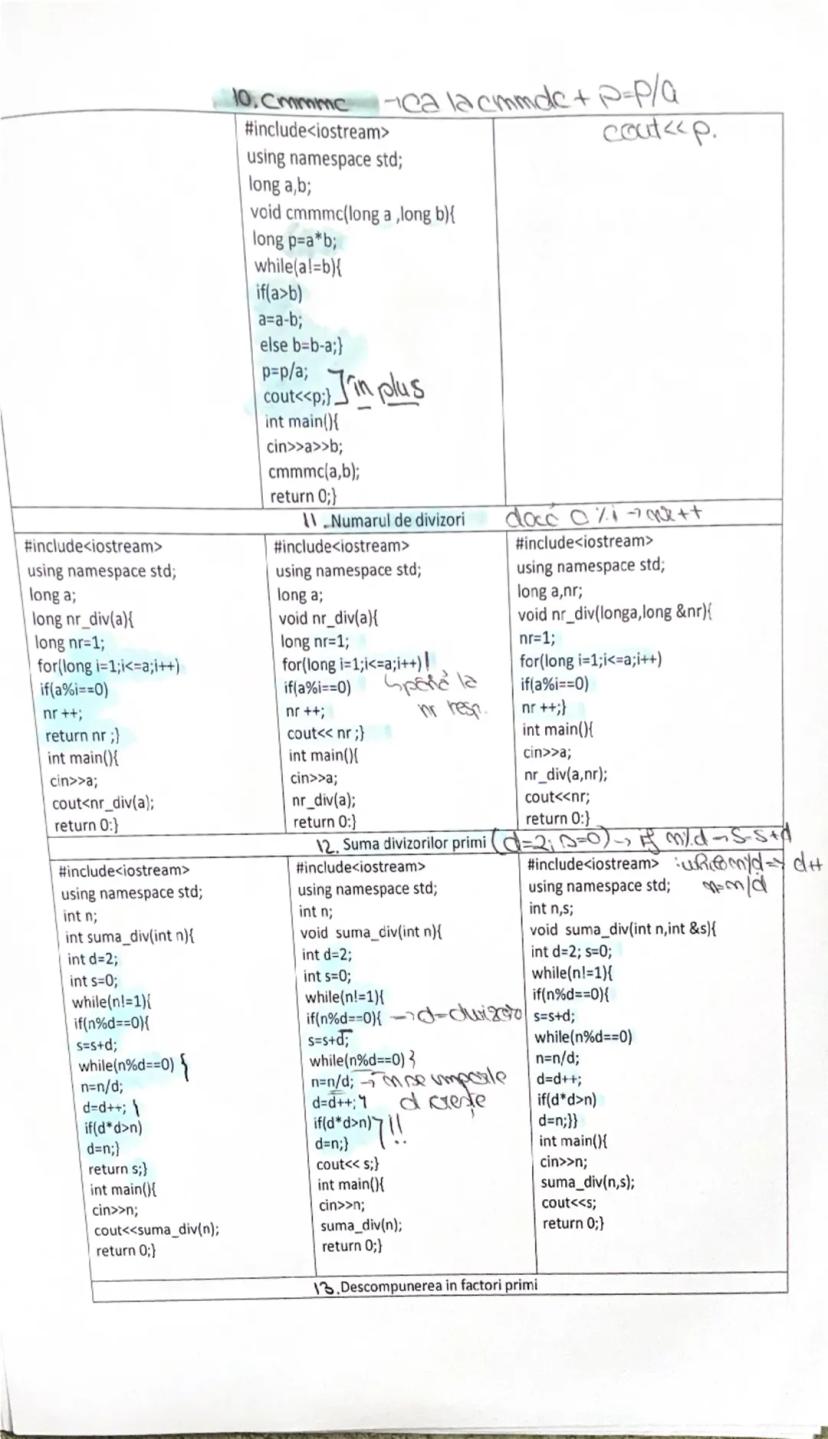 10. Cmmmc → ca la cmmdc + p=p/a
cout<<p.
#include<iostream>
using namespace std;
long a,b;
void cmmmc(long a ,long b){
long p=a*b;
while(a!=b){
if(a>b)
a=a-b;
else b=b-a;}
p=p/a;
cout<<p;}
în plus
int main(){
cin>>a>>b;
cmmmc(a,b);
return 0;}
11. Numarul de divizori
#include<iostream>
using namespace std;
long a;
long nr_div(a){
long nr=1;
for(long i=1;i<=a;i++)
if(a%i==0)
nr ++;
return nr ;}
int main(){
cin>>a;
cout<nr_div(a);
return 0:}
#include<iostream>
using namespace std;
long a;
void nr_div(a){
long nr=1;
for(long i=1;i<=a;i++) !
if(a%i==0) până la
nr ++; nr resp.
cout<< nr ;}
int main(){
cin>>a;
nr_div(a);
return 0:}
#include<iostream>
using namespace std;
long a,nr;
void nr_div(longa,long &nr){
nr=1;
for(long i=1;i<=a;i++)
if(a%i==0)
nr ++;}
int main(){
cin>>a;
nr_div(a,nr);
cout<<nr;
return 0:}
12. Suma divizorilor primi (d=2; s=0) → if n%d → s=s+d
#include<iostream>
using namespace std;
int n;
int suma_div(int n){
int d=2;
int s=0;
while(n!=1){
if(n%d==0){
s=s+d;
while(n%d==0) {
n=n/d;
d=d++; }
if(d*d>n)
d=n;}
return s;}
int main(){
cin>>n;
cout<<suma_div(n);
return 0;}
#include<iostream>
using namespace std;
int n;
void suma_div(int n){
int d=2;
int s=0;
while(n!=1){
if(n%d==0){ → d=divizor
s=s+d;
while(n%d==0) {
n=n/d; → n se împarte
d=d++; } d crește
if(d*d>n) !!
d=n;}
cout<< s;}
int main(){
cin>>n;
suma_div(n);
return 0;}
#include<iostream> :while n/d → d++
using namespace std; n=n/d
int n,s;
void suma_div(int n,int &s){
int d=2; s=0;
while(n!=1){
if(n%d==0){
s=s+d;
while(n%d==0)
n=n/d;
d=d++;
if(d*d>n)
d=n;}}
int main(){
cin>>n;
suma_div(n,s);
cout<<s;
return 0;}
13. Descompunerea in factori primi